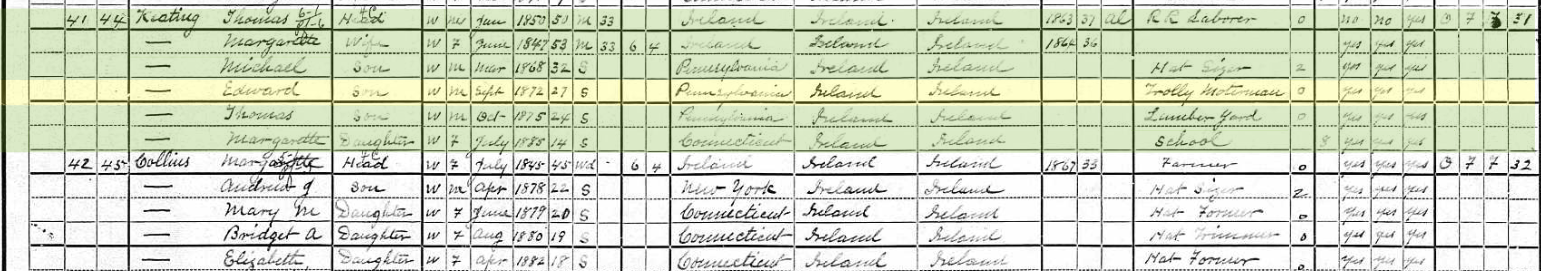 41 44 Keating Thomas Head W m Jan 1850 50 M 33 Ireland Ireland Ireland 1863 37 Al R R Laborer 0 no no yes O 7 31
— Margarette Wife W F June 1847 53 M 33 6 4 Ireland Ireland Ireland 1864 36 yes yes yes
— Michael Son W m Mar 1868 32 S Pennsylvania Ireland Ireland Hat Sizer 2 yes yes yes
— Edward Son W m Sept 1872 27 S Pennsylvania Ireland Ireland Trolly Motorman 0 yes yes yes
— Thomas Son W m Oct 1875 24 S Pennsylvania Ireland Ireland Lumber Yard 0 yes yes yes
— Margarette Daughter W F July 1885 14 S Connecticut Ireland Ireland School 8 yes yes yes
42 45 Collins Head W F July 1845 45 Wd 6 4 Ireland Ireland Ireland 1867 33 Farmer 0 yes yes yes O 7 7 32
— Andrew J Son W m Apr 1878 22 S New York Ireland Ireland Hat Sizer 2 yes yes yes
— Mary M Daughter W F June 1879 20 S Connecticut Ireland Ireland Hat Former 0 yes yes yes
— Bridget A Daughter W F Aug 1880 19 S Connecticut Ireland Ireland Hat Trimmer 0 yes yes yes
— Elizabeth Daughter W F Apr 1882 18 S Connecticut Ireland Ireland Hat Former 0 yes yes yes